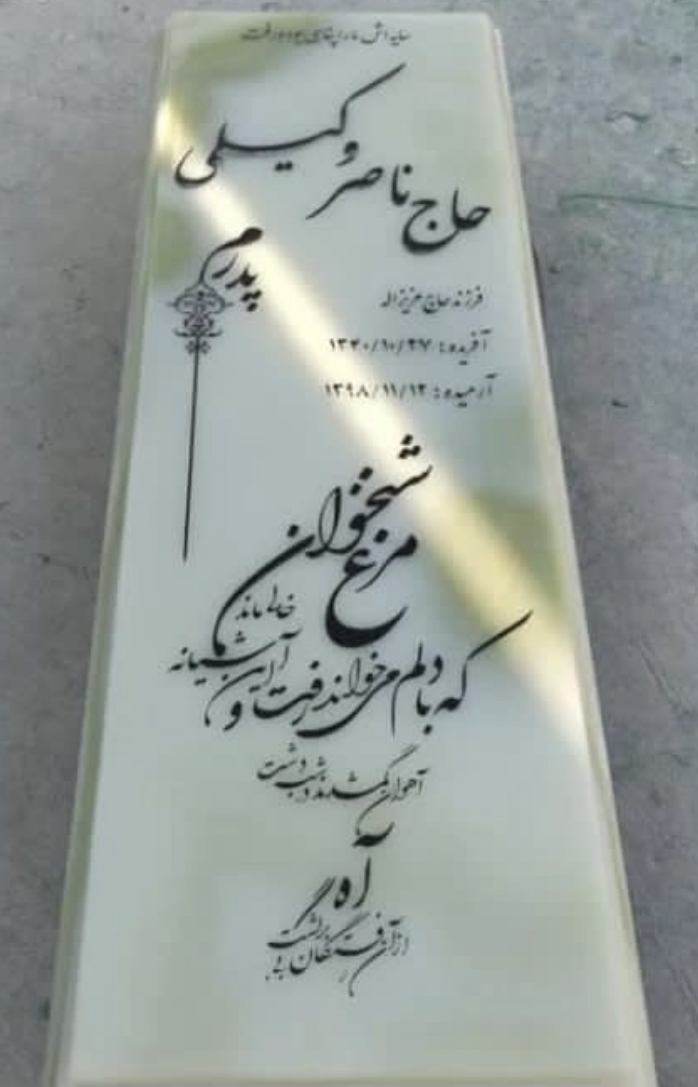 حاج ناصر وکیلی
پدرم
فرزند حاج عزیزاله
آفریده: ۱۳۴۰/۱۰/۲۷
آرمیده: ۱۳۹۸/۱۱/۱۲
مرغ شبخوان
که با دلم می خواند رفت و این آشیانه خالی ماند
آهوان گمشدند در شب دشت
آه
از آن رفتگان بی برگشت